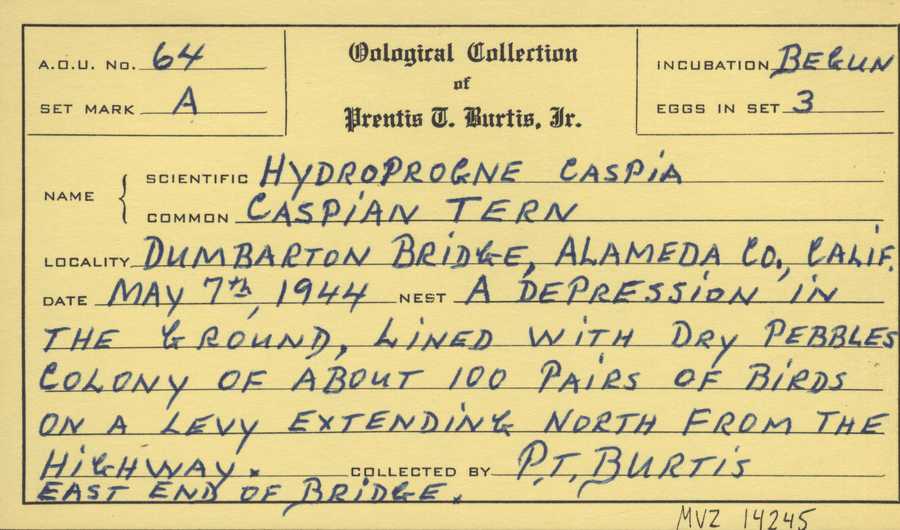 A.O.U. No. 64
SET MARK A
Oological Collection
of
Prentis T. Burtis, Jr.
INCUBATION BEGUN
EGGS IN SET 3
NAME
SCIENTIFIC HYDROPROGNE CASPIA
COMMON CASPIAN TERN
LOCALITY DUMBARTON BRIDGE, ALAMEDA CO., CALIF.
DATE MAY 7th, 1944 NEST A DEPRESSION IN
THE GROUND, LINED WITH DRY PEBBLES
COLONY OF ABOUT 100 PAIRS OF BIRDS
ON A LEVY EXTENDING NORTH FROM THE
HIGHWAY. COLLECTED BY P.T. BURTIS
EAST END OF BRIDGE.
MVZ 14245